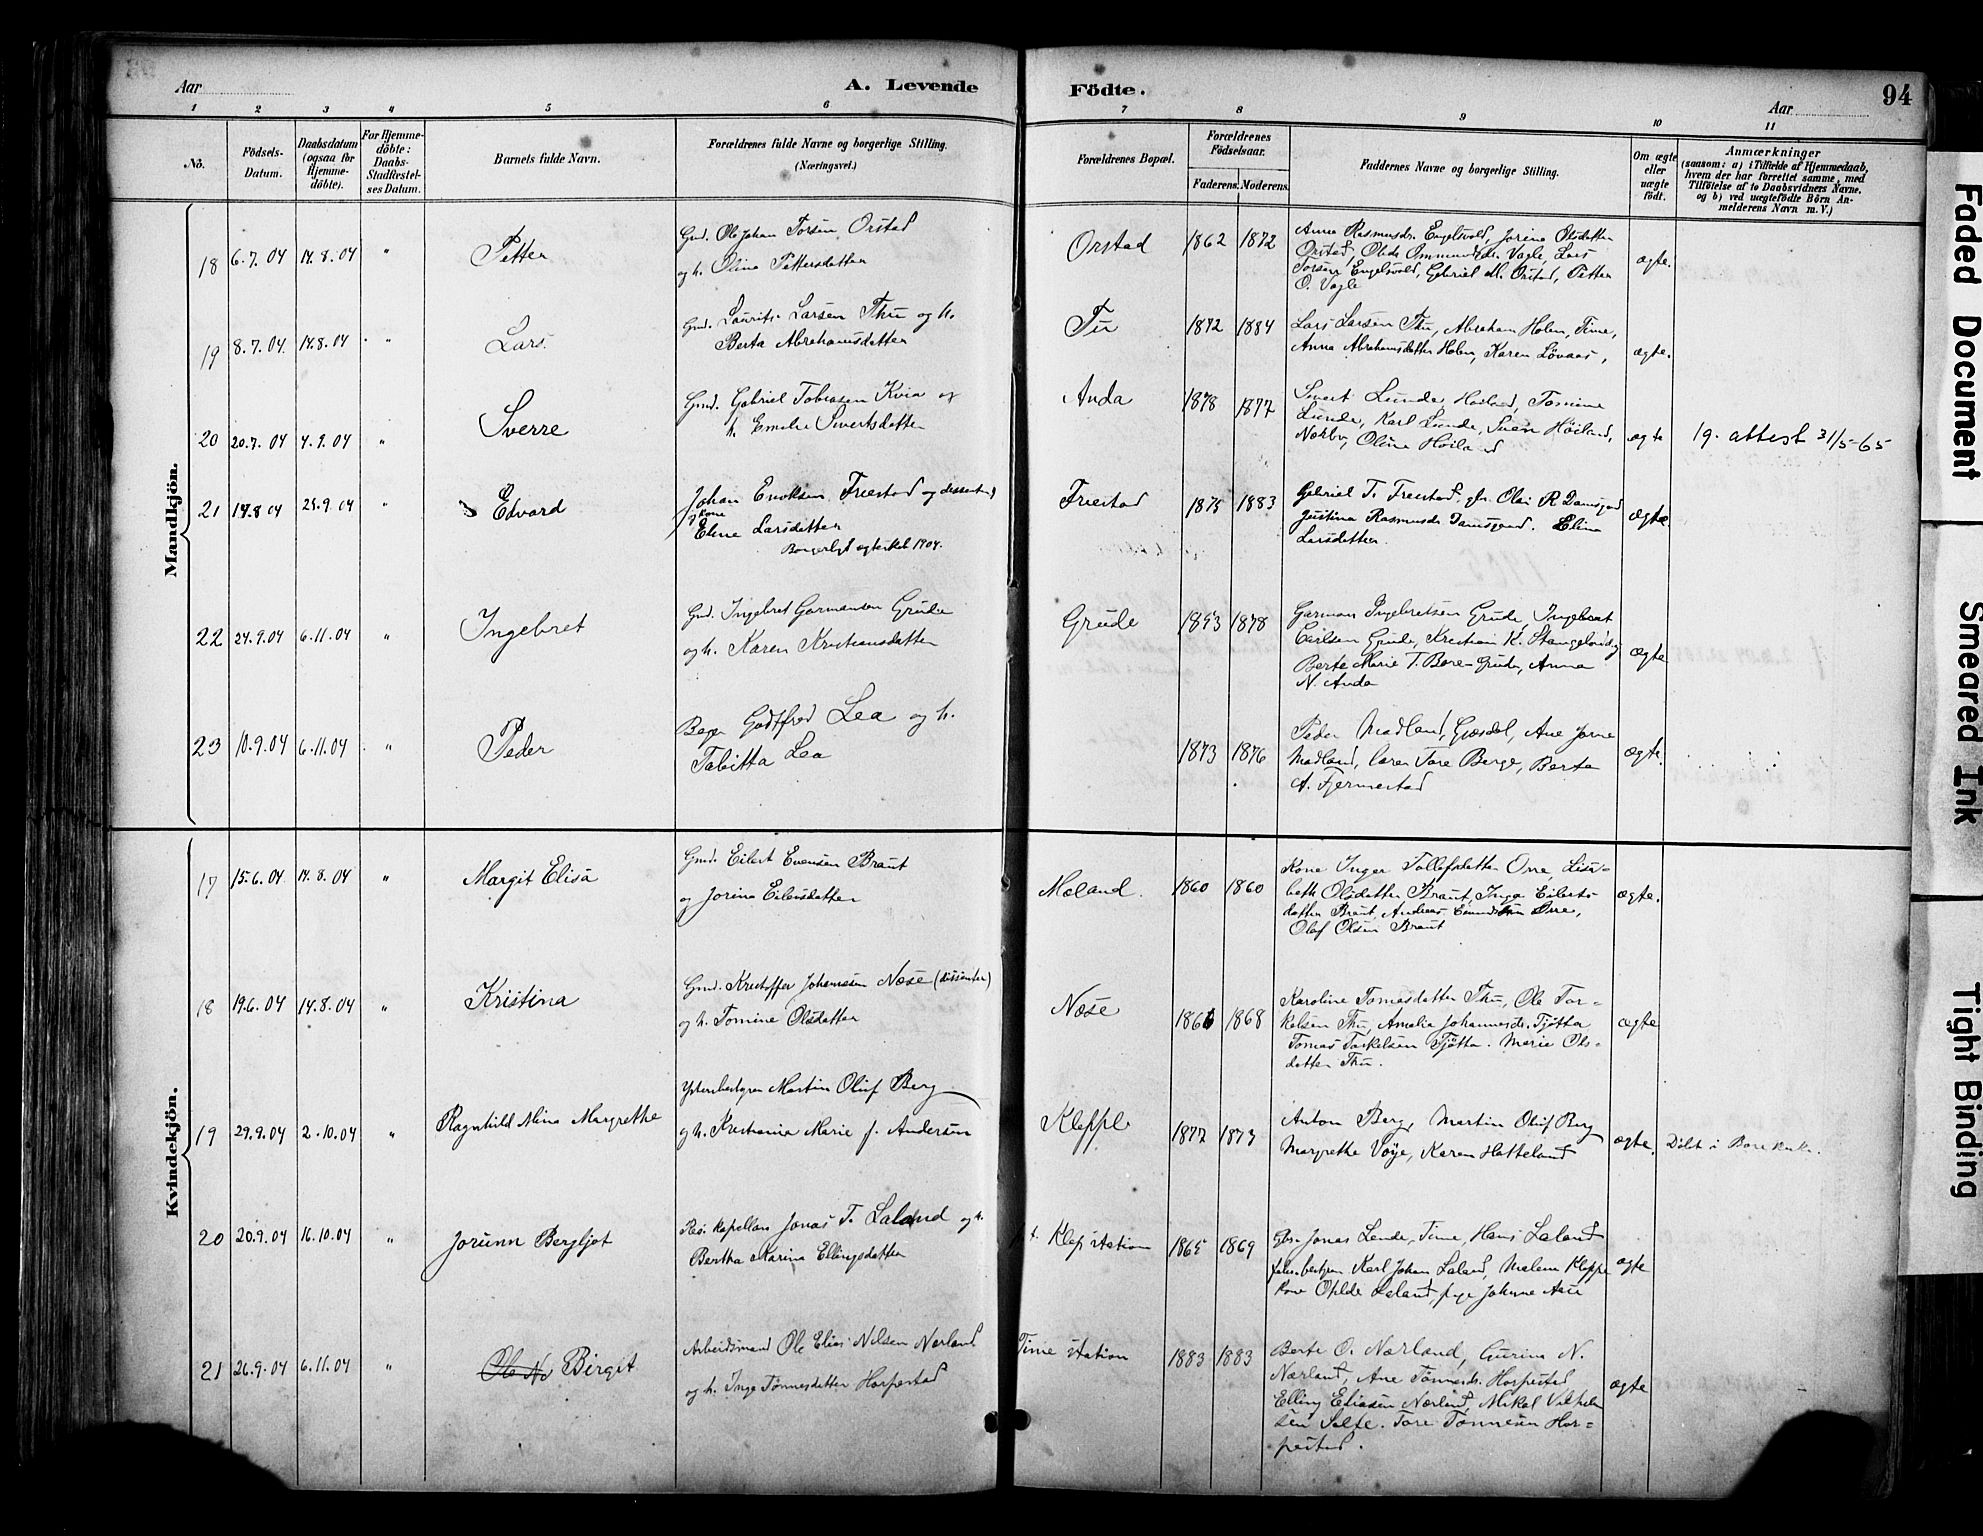 Aar
A. Levende
Födte.
Aar
94
1 2 3 4 5 6 7 8 9 10 11
No.
Födsels-Datum.
Daabsdatum (ogsaa for Hjemme-döbte).
For Hjemme-döbte: Daabs-Stadfæstel-ses Datum.
Barnets fulde Navn.
Forældrenes fulde Navne og borgerlige Stilling.
(Næringsvei.)
Forældrenes Bopæl.
Forældrenes Födselsaar.
Faderens. Moderens.
Faddernes Navne og borgerlige Stilling.
Om ægte eller uægte födt.
Anmærkninger
(saasom: a) i Tilfælde af Hjemmedaab, hvem der har forrettet samme, med Tilföielse af to Daabsvidners Navne, og b) ved uægtefödte Börn An-melderens Navn m. V.)
Mandkjön.
18 6.7.04 14.8.04 " Petter
Gmd. Ole Johan Torsen Orstad
og h. Olina Pettersdatter
Orstad 1862 1872
Anna Rasmusdr. Engelsvold, Jorina Olsdatter
Orstad, Vagle, Lars
Torsen Engelsvold, Gabriel M. Orstad, Petter
O. Vagle
ægte.
19 8.7.04 14.8.04 " Lars
Gmd. Laurits Larsen Thu og h.
Berta Abrahamsdatter
Tu 1872 1884
Lars Larsen Thu, Abraham Holm, Time,
Anna Abrahamsdatter Holm, Karen Lövaas,
ægte.
20 20.7.04 4.9.04 " Sverre
Gmd. Gabriel Tobiasen Kvia og
h. Emelie Sivertsdatter
Anda 1878 1877
Sivert Lunde, Høiland, Tomine
Lunde, Karl Lunde, Sven Höiland,
Nærbø, Oline Høiland
ægte
19. attest 31/5-65
21 14.8 04 25.9.04 " Edvard
Johan Enoksen Friestad og
kone
Elene Larsdatter
Borgerligt ægteskab 1904.
Friestad 1875 1883
Gabriel T. Friestad, Olai R Damsgaard
Justina Rasmusdr. Damsgaard. Elina
Larsdatter.
ægte
22 24.9.04 6.11.04 " Ingebret
Gmd. Ingebret Garmansen Grude
og h. Karen Kristiansdatter
Grude 1853 1878
Garman Ingebretsen Grude, Ingebret
Carlsen Grude, Kristian K. Stangeland,
Berte Marie T. Bore-Grude, Anna
N. Anda
ægte
23 10.9.04 6.11.04 " Peder
Godtfred Lea og h.
Tabitta Lea
1873 1876
Peder Madland, Gjesdal, Ane Jorine
Madland, Tore Berge, Berta
A. Fjermestad
ægte.
Kvindekjön.
17 15.6.04 14.8.04 " Margit Elisa
Gmd. Eilert Evensen Braut
og Jorina Eilertsdatter
Mæland. 1860 1860
Kone Inger Tollefsdatter Orre, Lisa-
beth Olsdatter Braut, Inga Eilerts-
datter Braut, Andreas Orre,
Olaf Olsen Braut
ægte.
18 19.6.04 14.8.04 " Kristina
Gmd. Kristoffer Johannesen Næse (dissenter)
og h. Tomine Olsdatter
Næse 1866 1868
Karoline Tomasdatter Thu, Ole Tor-
kelsen Thu, Amalia Johannesdr. Tjötta
Tomas Torkelsen Tjøtta. Marie Ols-
datter Thu.
ægte
19 29.9.04 2.10.04 " Ragnhild Alina Margrethe
Ysteribestyrer Martin Oluf Berg
og h. Kristiania Marie f. Andersen
Kleppe 1877 1873
Anton Berg, Martin Oluf Berg
Margrethe Voye, Karen Hatteland
ægte.
Döbt i Bore kirke.
20 20.9.04 16.10.04 " Jorunn Bergljot
Res. kapellan Jonas T. Laland og h.
Bertha Karina Ellingsdatter
Klep station 1865 1869
Jonas Lende, Time, Hans Laland
Karl Johan Laland, Malena Kleppe
Kone Laland,
ægte
21 26.9.04 6.11.04 " Birgit
Arbeidsmand Ole Elias Nilsen Nærland
og h. Inga Tönnesdatter Horpestad
Time station 1883 1883
Berte O. Nærland, Gurina N.
Nærland, Ane Tönnesdr. Horpestad
Elling Eliasen Nærland, Mikal Vilhelm-
sen Salte. Tore Tönnesen Hor-
pestad.
ægte
Faded Document
Smeared Ink
Tight Binding